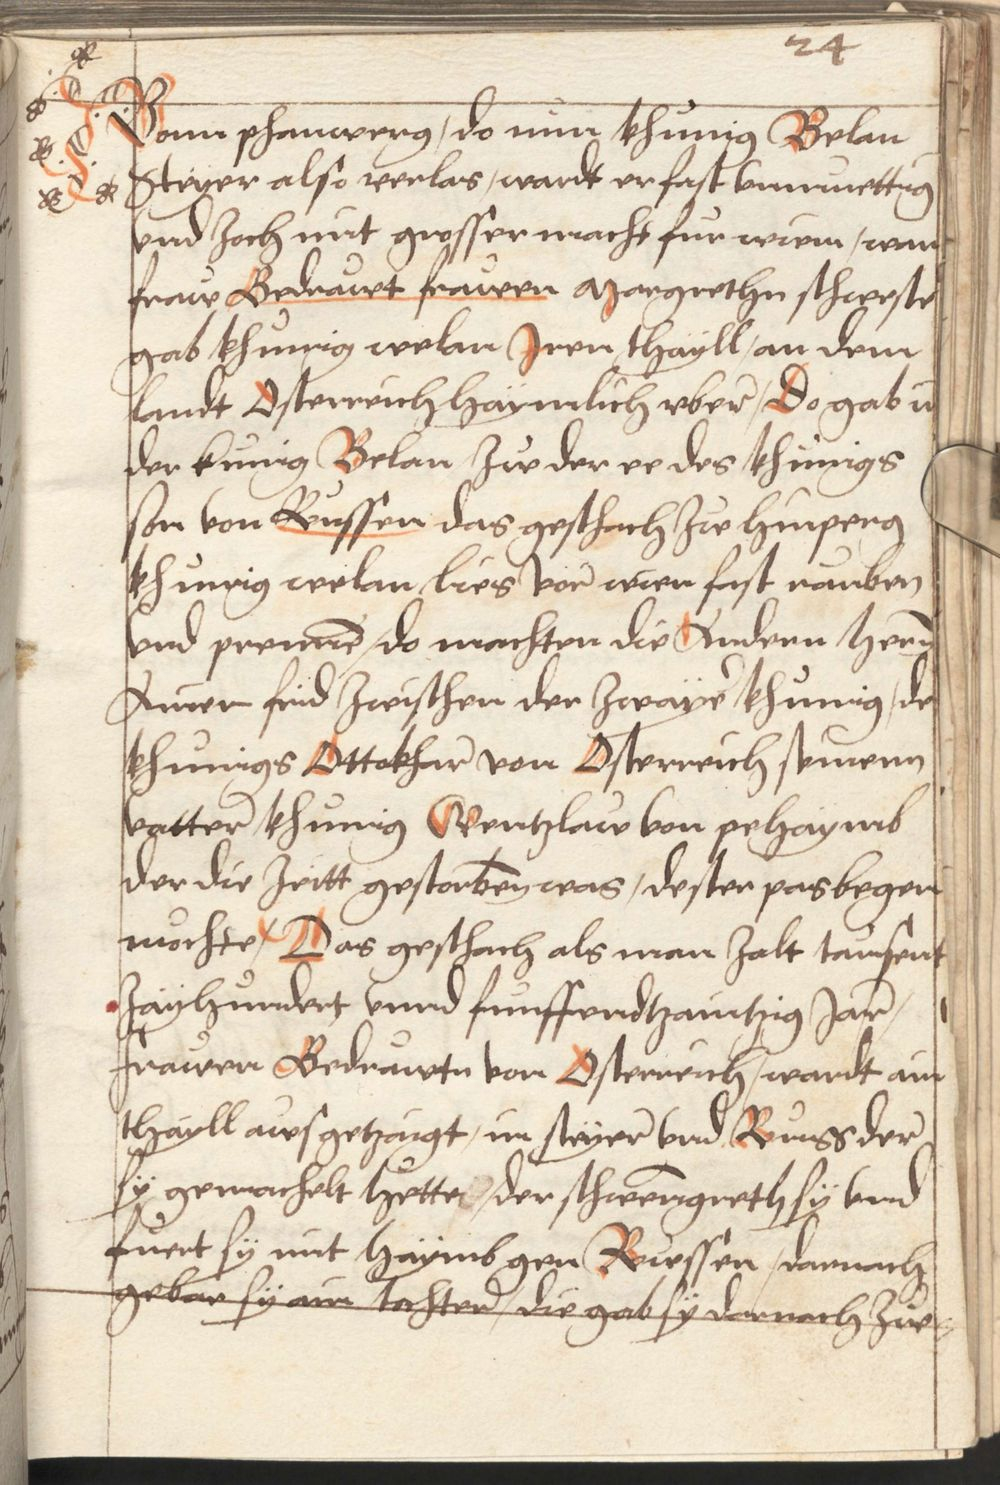 24
Vonn phanwerg / do nun khunig Belan
Steyer also verlos / wardt er fast unmuettig
vnd Zoch mit grosser macht fur wienn / wan
fraw Gedrawt frawen Margrethn schweste
gab khunig welan Iren thayll / an dem
landt Osterreich haymlich vber / Do gab ir
der kunig Belan Zw der ee des khunigs
son von Russen das geschach Zw hinperg
khunig welan lies vor wien fast rauben
vnd prennē / do machten die Andern hern
Ainen frid Zwischen der Zwayē khunig / de
khunigs Ottokhar von Osterreich seinenn
vatter khunig Wentzlaw von pehaymb
der die Zeitt gestorben was / dester pas begen
mochte / Das geschach als man Zalt tausent
Zayhundert vnnd funffvndtzaintzig Jar /
frawen Gedrawtn von Osterreich / wardt ain
thayll awsgetzaigt / in steyer vnd Reuss der
sy gemachelt hette / der schwengreth sy vnd
fuert sy mit haymb gen Reussen / darnach
gebar sy ain tochter / die gab sy darnach Zw